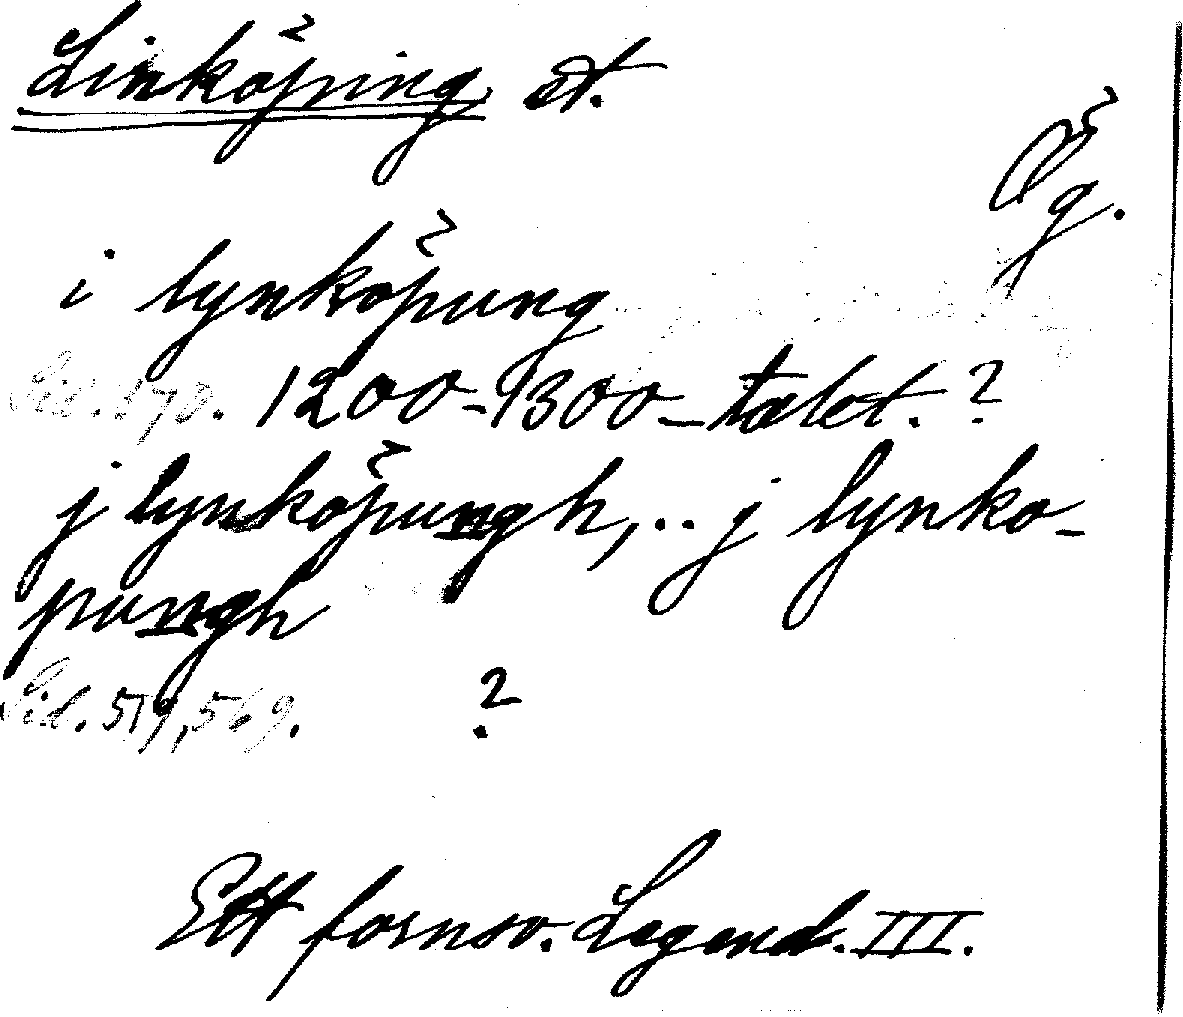 Linköping st.
Ög.
i lynköpung
Sid. 170. 1200-1300-talet. ?
j lynköpungh, .. j lynko-
pungh
Sid. 519, 569. ?
Ett fornsv. Legend. III.